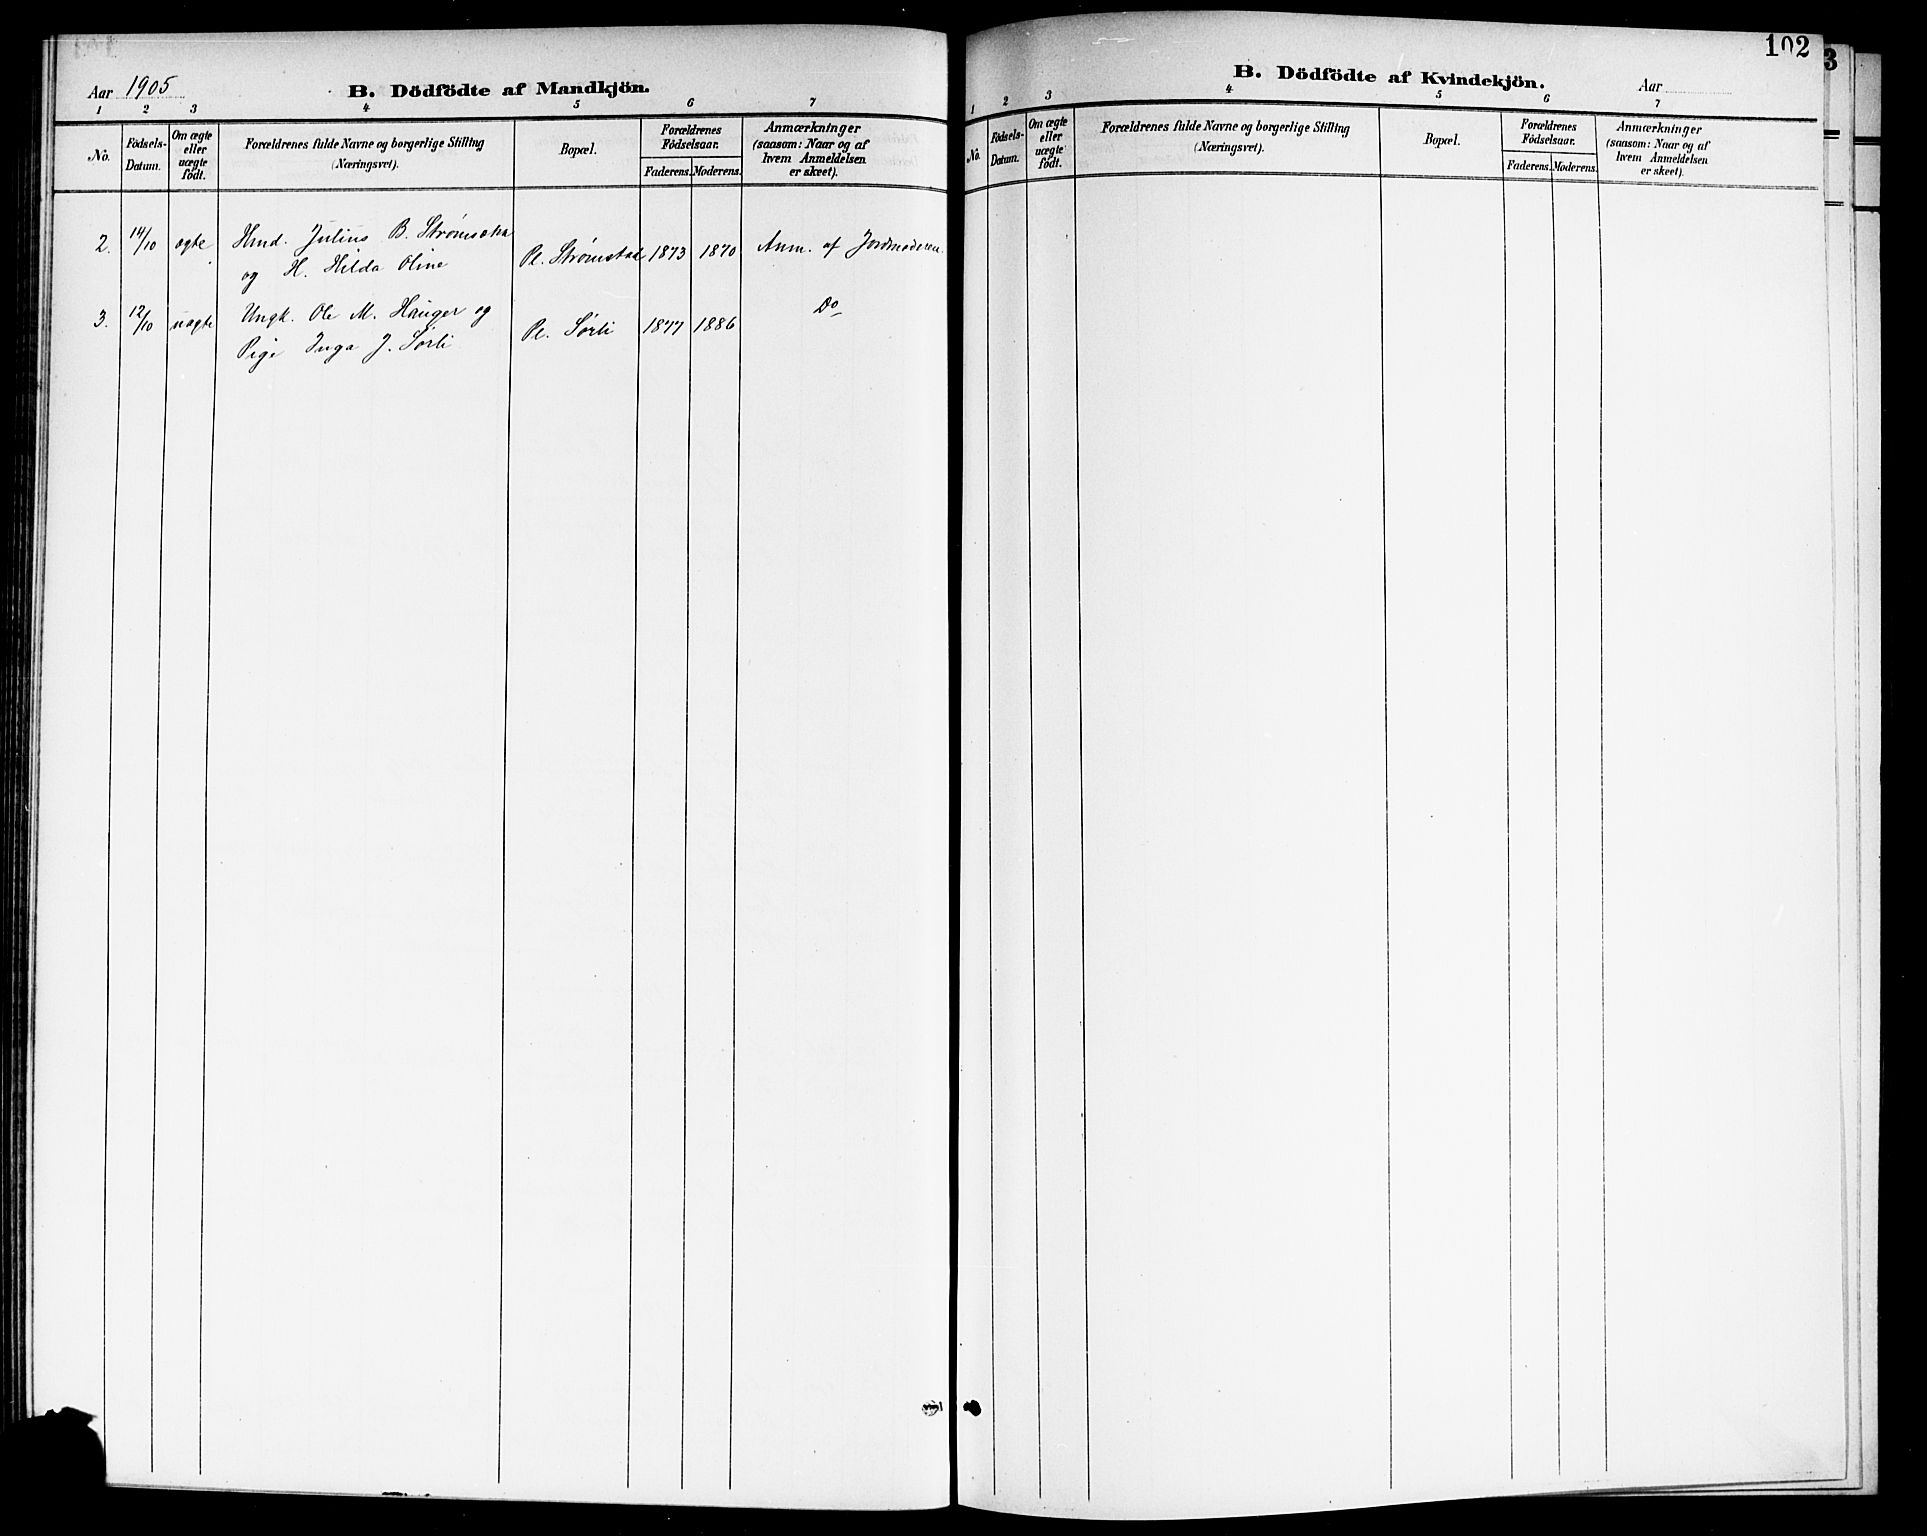 Aar 1905
B. Dödfödte af Mandkjön.
1 2 3 4 5 6 7
No.
Födsels-
Datum.
Om ægte
eller
uægte
födt.
Forældrenes fulde Navne og borgerlige Stilling
(Næringsvei).
Bopæl.
Forældrenes
Födselsaar.
Faderens. Moderens.
Anmærkninger
(saasom: Naar og af
hvem Anmeldelsen
er skeet).
2. 14/10 ægte Hmd. Julius B. 
og H. Hilda Oline
Pl. Strømstad 1873 1870 Anm. af Jordmoderen.
3. 12/10 uægte Ungk. Ole M. Hauger og
Pige Inga J. Sørli
Pl. Sørli 1877 1886 Do
102
B. Dödfödte af Kvindekjön.
Aar
1 2 3 4 5 6 7
No.
Födsels-
Datum.
Om ægte
eller
uægte
födt.
Forældrenes fulde Navne og borgerlige Stilling
(Næringsvei).
Bopæl.
Forældrenes
Födselsaar.
Faderens. Moderens.
Anmærkninger
(saasom: Naar og af
hvem Anmeldelsen
er skeet).
3